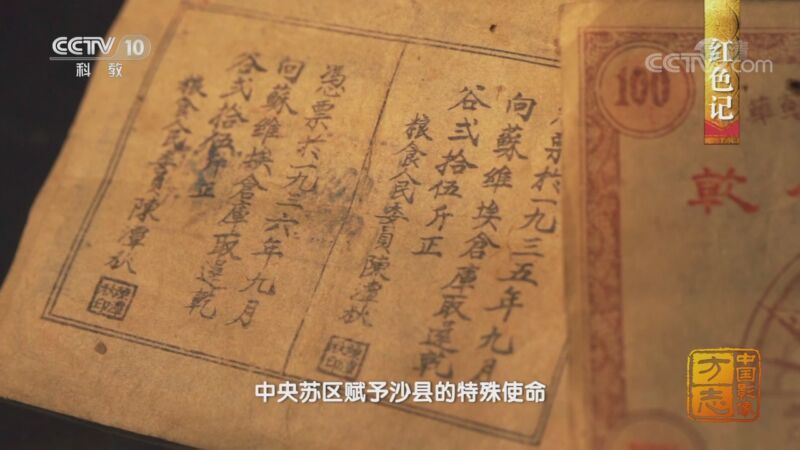 CCTV 10
科教
CCTV.com
红色记
憑票於一九三五年九月
向蘇維埃倉庫取還乾
谷弍拾伍斤正
粮食人民委員陳潭秋
憑票於一九三六年九月
向蘇維埃倉庫取還乾
谷弍拾伍斤正
粮食人民委員陳潭秋
100
乾
中央苏区赋予沙县的特殊使命
中国影像
方志